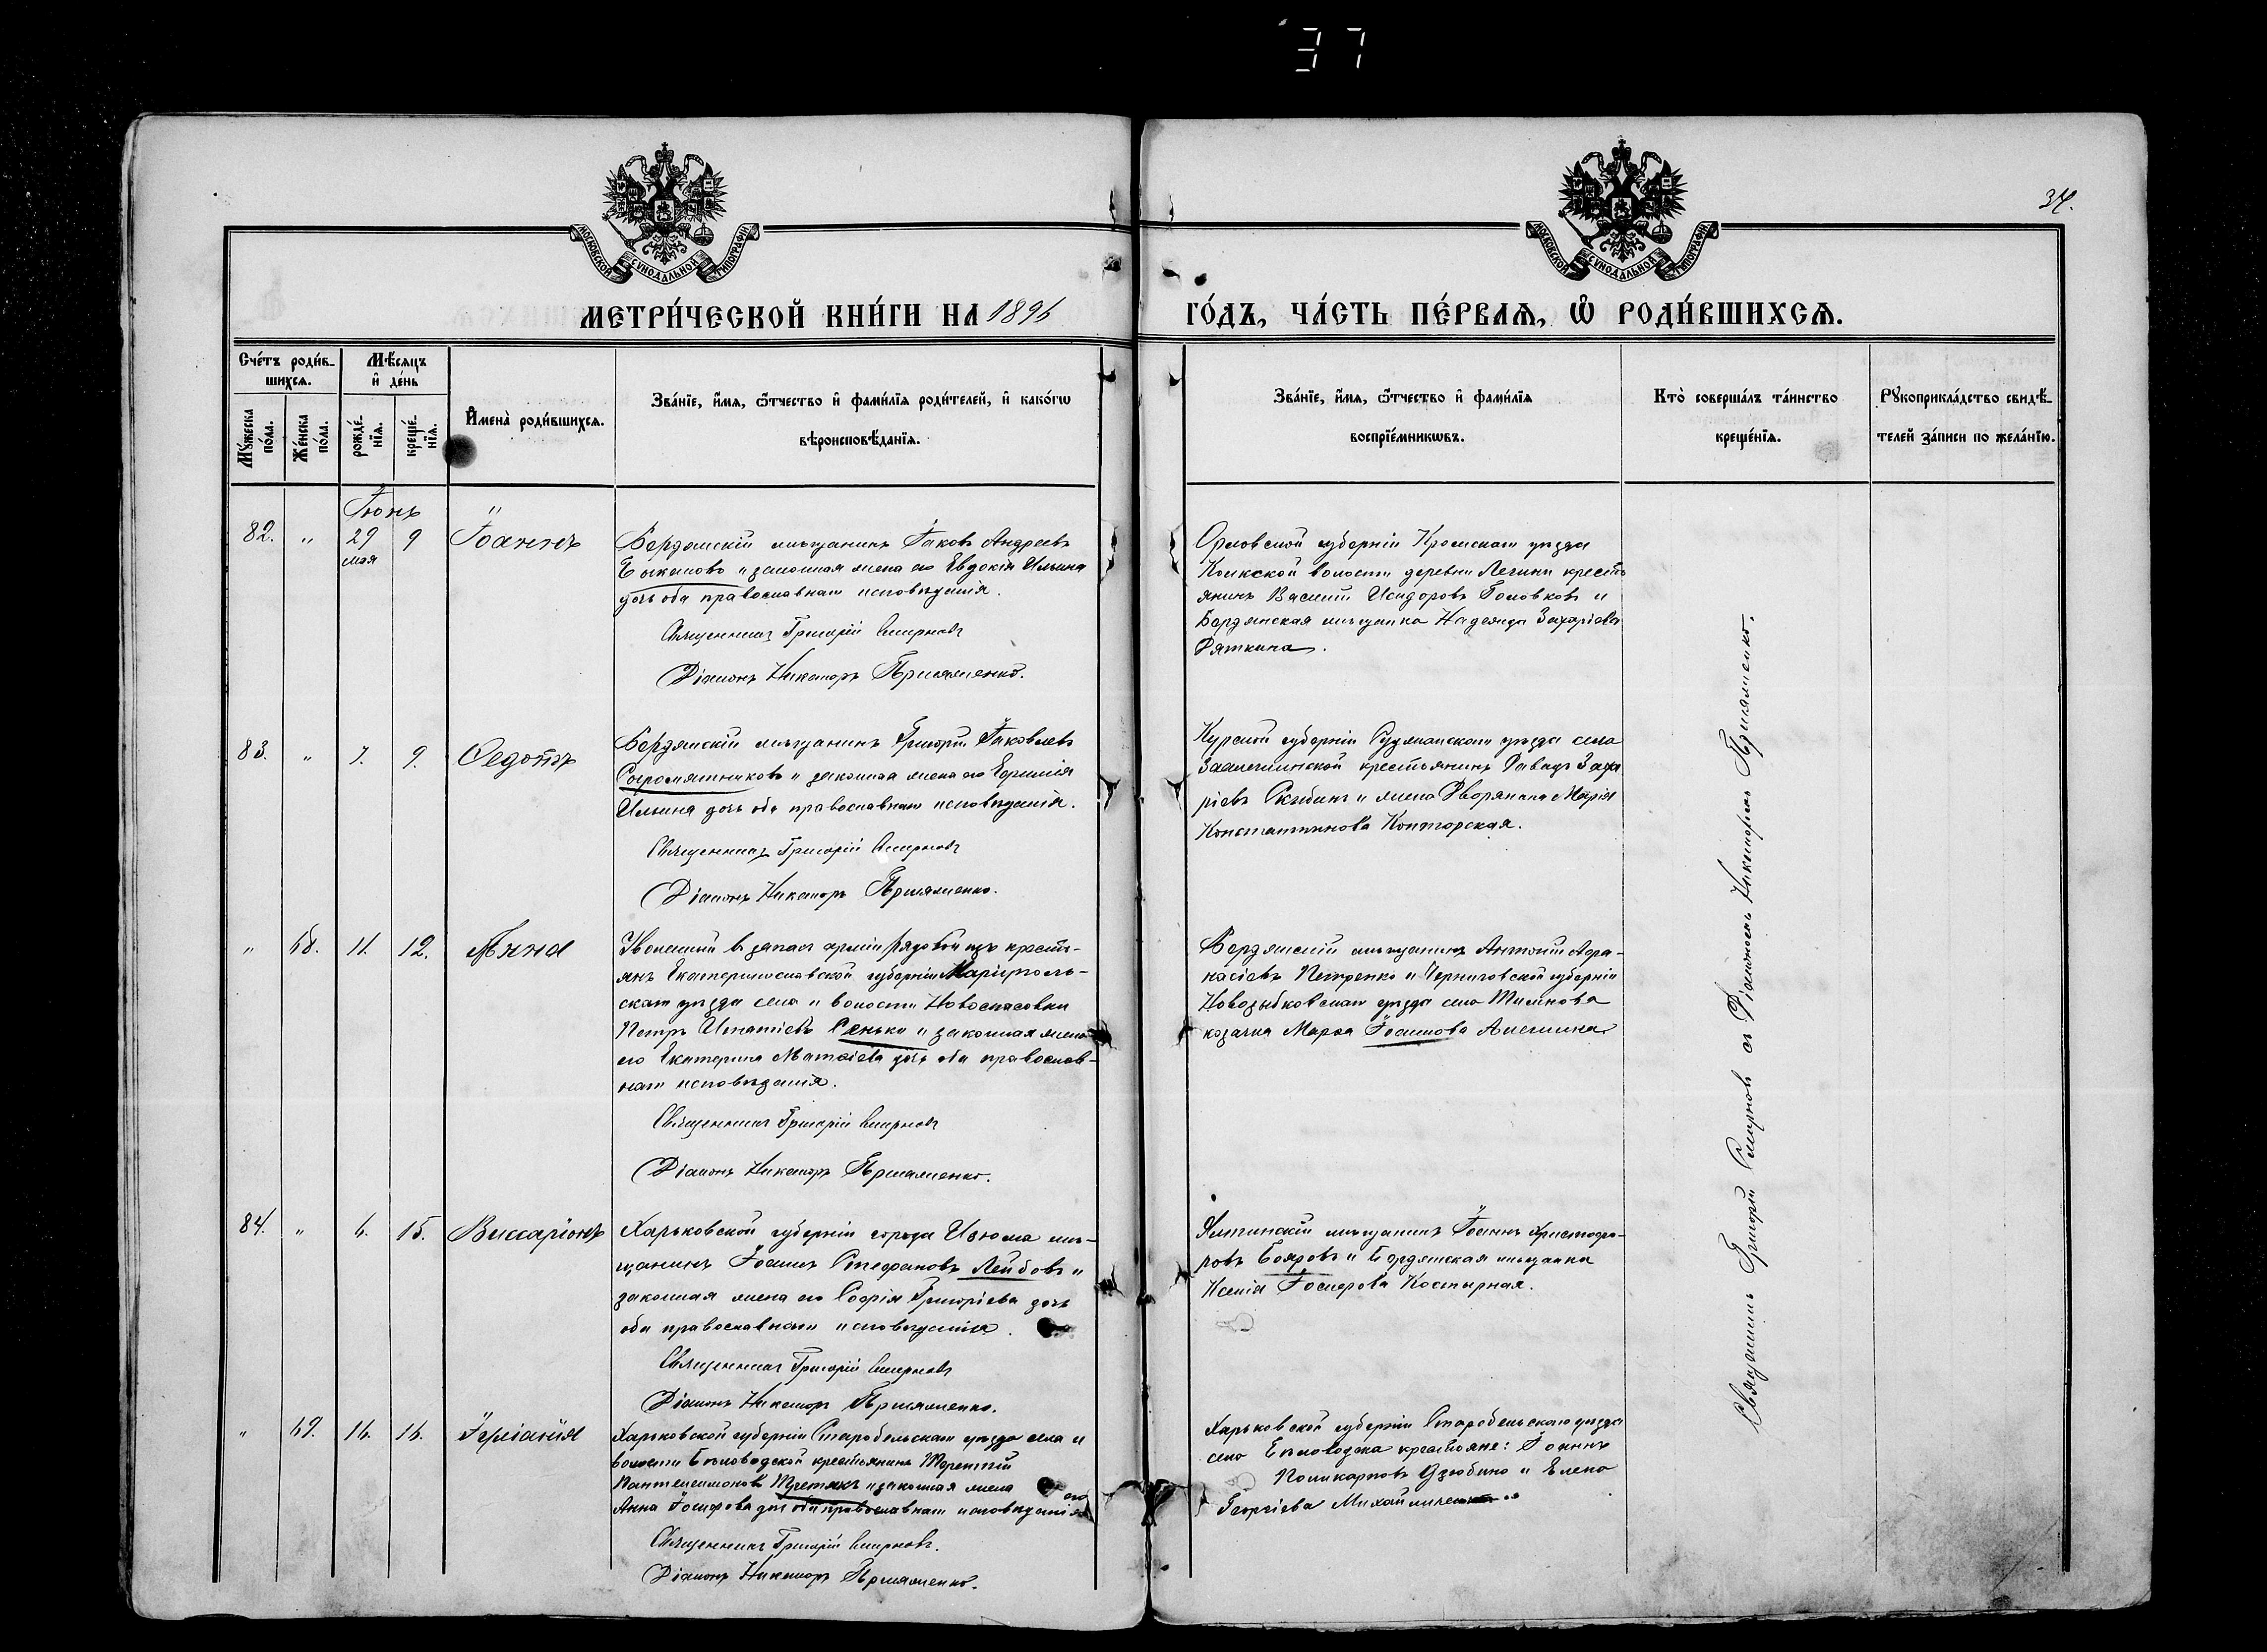 37
34.
МОСКОВСКОЙ СѴНОДАЛЬНОЙ ТИПОГРАФІИ
МОСКОВСКОЙ СѴНОДАЛЬНОЙ ТИПОГРАФІИ
МЕТРИ́ЧЕСКОЙ КНИ́ГИ НА 1896
ГО́ДЪ, ЧА́СТЬ ПЕ́РВАѦ, Ѡ҆ РОДИ́ВШИХСѦ.
Сче́тъ роди́в-
шихсѧ.
Мꙋ́жеска
по́ла.
Же́нска
по́ла.
Мѣ́сѧцъ
и҆ де́нь
рожде́-
нїѧ.
креще́-
нїѧ.
И҆мена̀ роди́вшихсѧ.
Зва́нїе, и҆́мѧ, ѻ҆́тчество и҆ фами́лїѧ роди́телей, и҆ како́гѡ
вѣроисповѣ́данїѧ.
Зва́нїе, и҆́мѧ, ѻ҆́тчество и҆ фами́лїѧ
воспрїе́мникѡвъ.
Кто̀ соверша́лъ та́инство
креще́нїѧ.
Рꙋкоприкла́дство свидѣ́-
телей за́писи по жела́нїю.
Іюнь
82. " 29 9 Іоаннъ
мая
Бердянскій мѣщанинъ Іаковъ Андреевъ
Быкановъ и законная жена его Евдокія Ильина
дочь оба православнаго исповѣданія.
Священникъ Григорій Смирновъ
Діаконъ Никаноръ
Орловской губерніи Кромскаго уѣзда
волости деревни крестъ
янинъ Василій Исидоровъ Головковъ и
Бердянская мѣщанка Надежда Захаріева
83. " 7. 9. Ѳедотъ
Бердянскій мѣщанинъ Григорій Іаковлевъ
Сыромятниковъ и законная жена его
Ильина дочь оба православнаго исповѣданія.
Священникъ Григорій Смирновъ
Діаконъ Никаноръ
Курской губерніи Суджанскаго уѣзда села
крестьянинъ Давидъ Заха
ріевъ и жена Дворянина Марія
Константинова Конторская.
" 68. 11. 12. Анна
Уволенный въ запасъ арміи рядовой изъ кресть-
янъ Екатеринославской губерніи Маріуполь-
скаго уѣзда села и волости Новоспасовки
Петръ Игнатіевъ Сенько и законная жена
его Екатерина Матѳіева дочь оба православ-
наго исповѣданія.
Священникъ Григорій Смирновъ
Діаконъ Никаноръ
Бердянскій мѣщанинъ Антоній Аѳа-
насіевъ Петренко и Черниговской губерніи
Новозыбковскаго уѣзда села
козачка Марѳа Іоаннова
84. " 6. 15. Виссаріонъ
Харьковской губерніи города Изюма мѣ-
щанинъ Іоаннъ Стефановъ Лейбовъ и
законная жена его Софія Григоріева дочь
оба православнаго исповѣданія.
Священникъ Григорій Смирновъ
Діаконъ Никаноръ
Ялтинскій мѣщанинъ Іоаннъ Христофо-
ровъ Бояровъ и Бердянская мѣщанка
Ксенія Іосифова Костырная.
" 69. 16. 16. Іуліанія
Харьковской губерніи Старобельскаго уѣзда села и
волости Бѣловодской крестьянинъ Терентій
Пантелеимоновъ Третякъ и законная жена его
Анна Іосифова дочь оба православнаго исповѣданія
Священникъ Григорій Смирновъ.
Діаконъ Никаноръ
Харьковской губерніи Старобельскаго уѣзда
села Бѣловодска крестьяне: Іоаннъ
Поликарповъ Дзюбино и Елена
Георгіева
Священникъ Григорій Смирновъ съ Діакономъ Никаноромъ